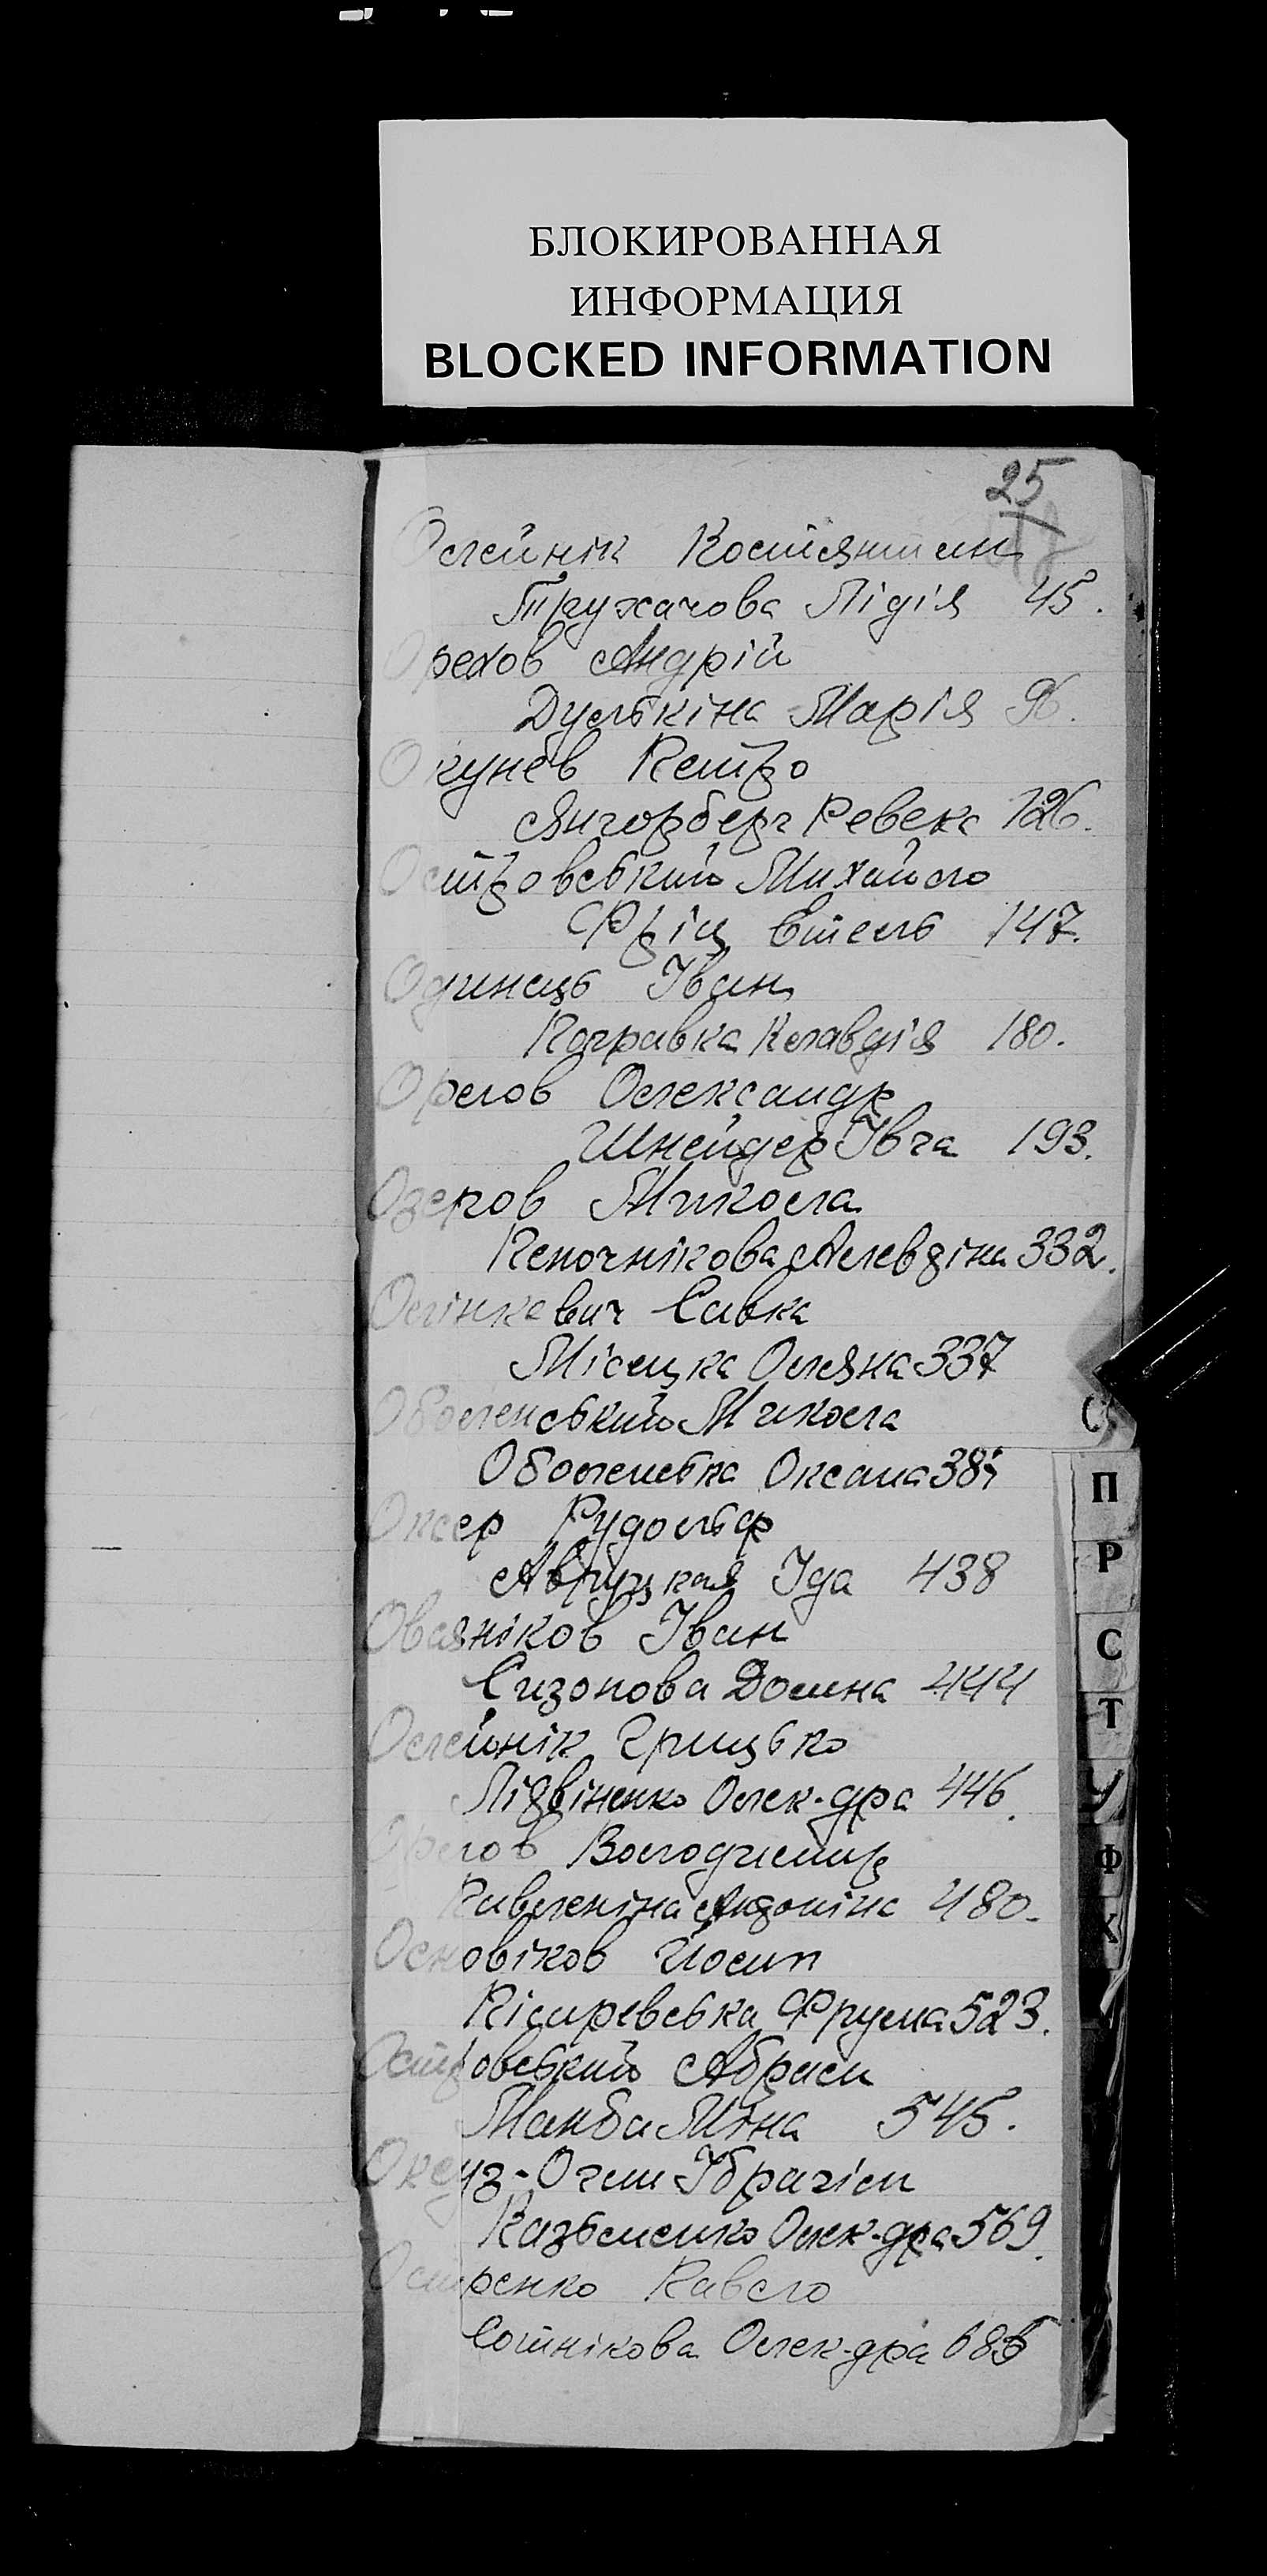 БЛОКИРОВАННАЯ
ИНФОРМАЦИЯ
BLOCKED INFORMATION
25
Олейнік Костянтин
Тружачова Лідія 45.
Орехов Андрій
Дулькіна Марія 96.
Окунёв Петро
Янгорберг Ревека 126.
Островський Михайло
Фріц Етель 147.
Одинець Іван
Погравка Клавдія 180.
Орлов Олександр
Шнейдер Івга 193.
Озеров Микола
Ключнікова Алевтіна 332.
Олінкевич Савка
Місецка Оляна 337
Оболенський Микола
Оболенська Оксана
Оксер Рудольф
Авруцкая Іда 438
Овсяніков Іван
Сизонова Домна 444
Олейнік Грицько
Літвіненко Олек-дра 446.
Орлов Володимир
Антоніна 480.
Основіков Йосип
Фрума 523.
Островський Абрам
Манба Міна 545.
Огли Ібрагім
Казьменко Олек-дра 569.
Остренко Павло
Сотнікова Олек-дра 685
О
П
Р
С
Т
У
Ф
Х